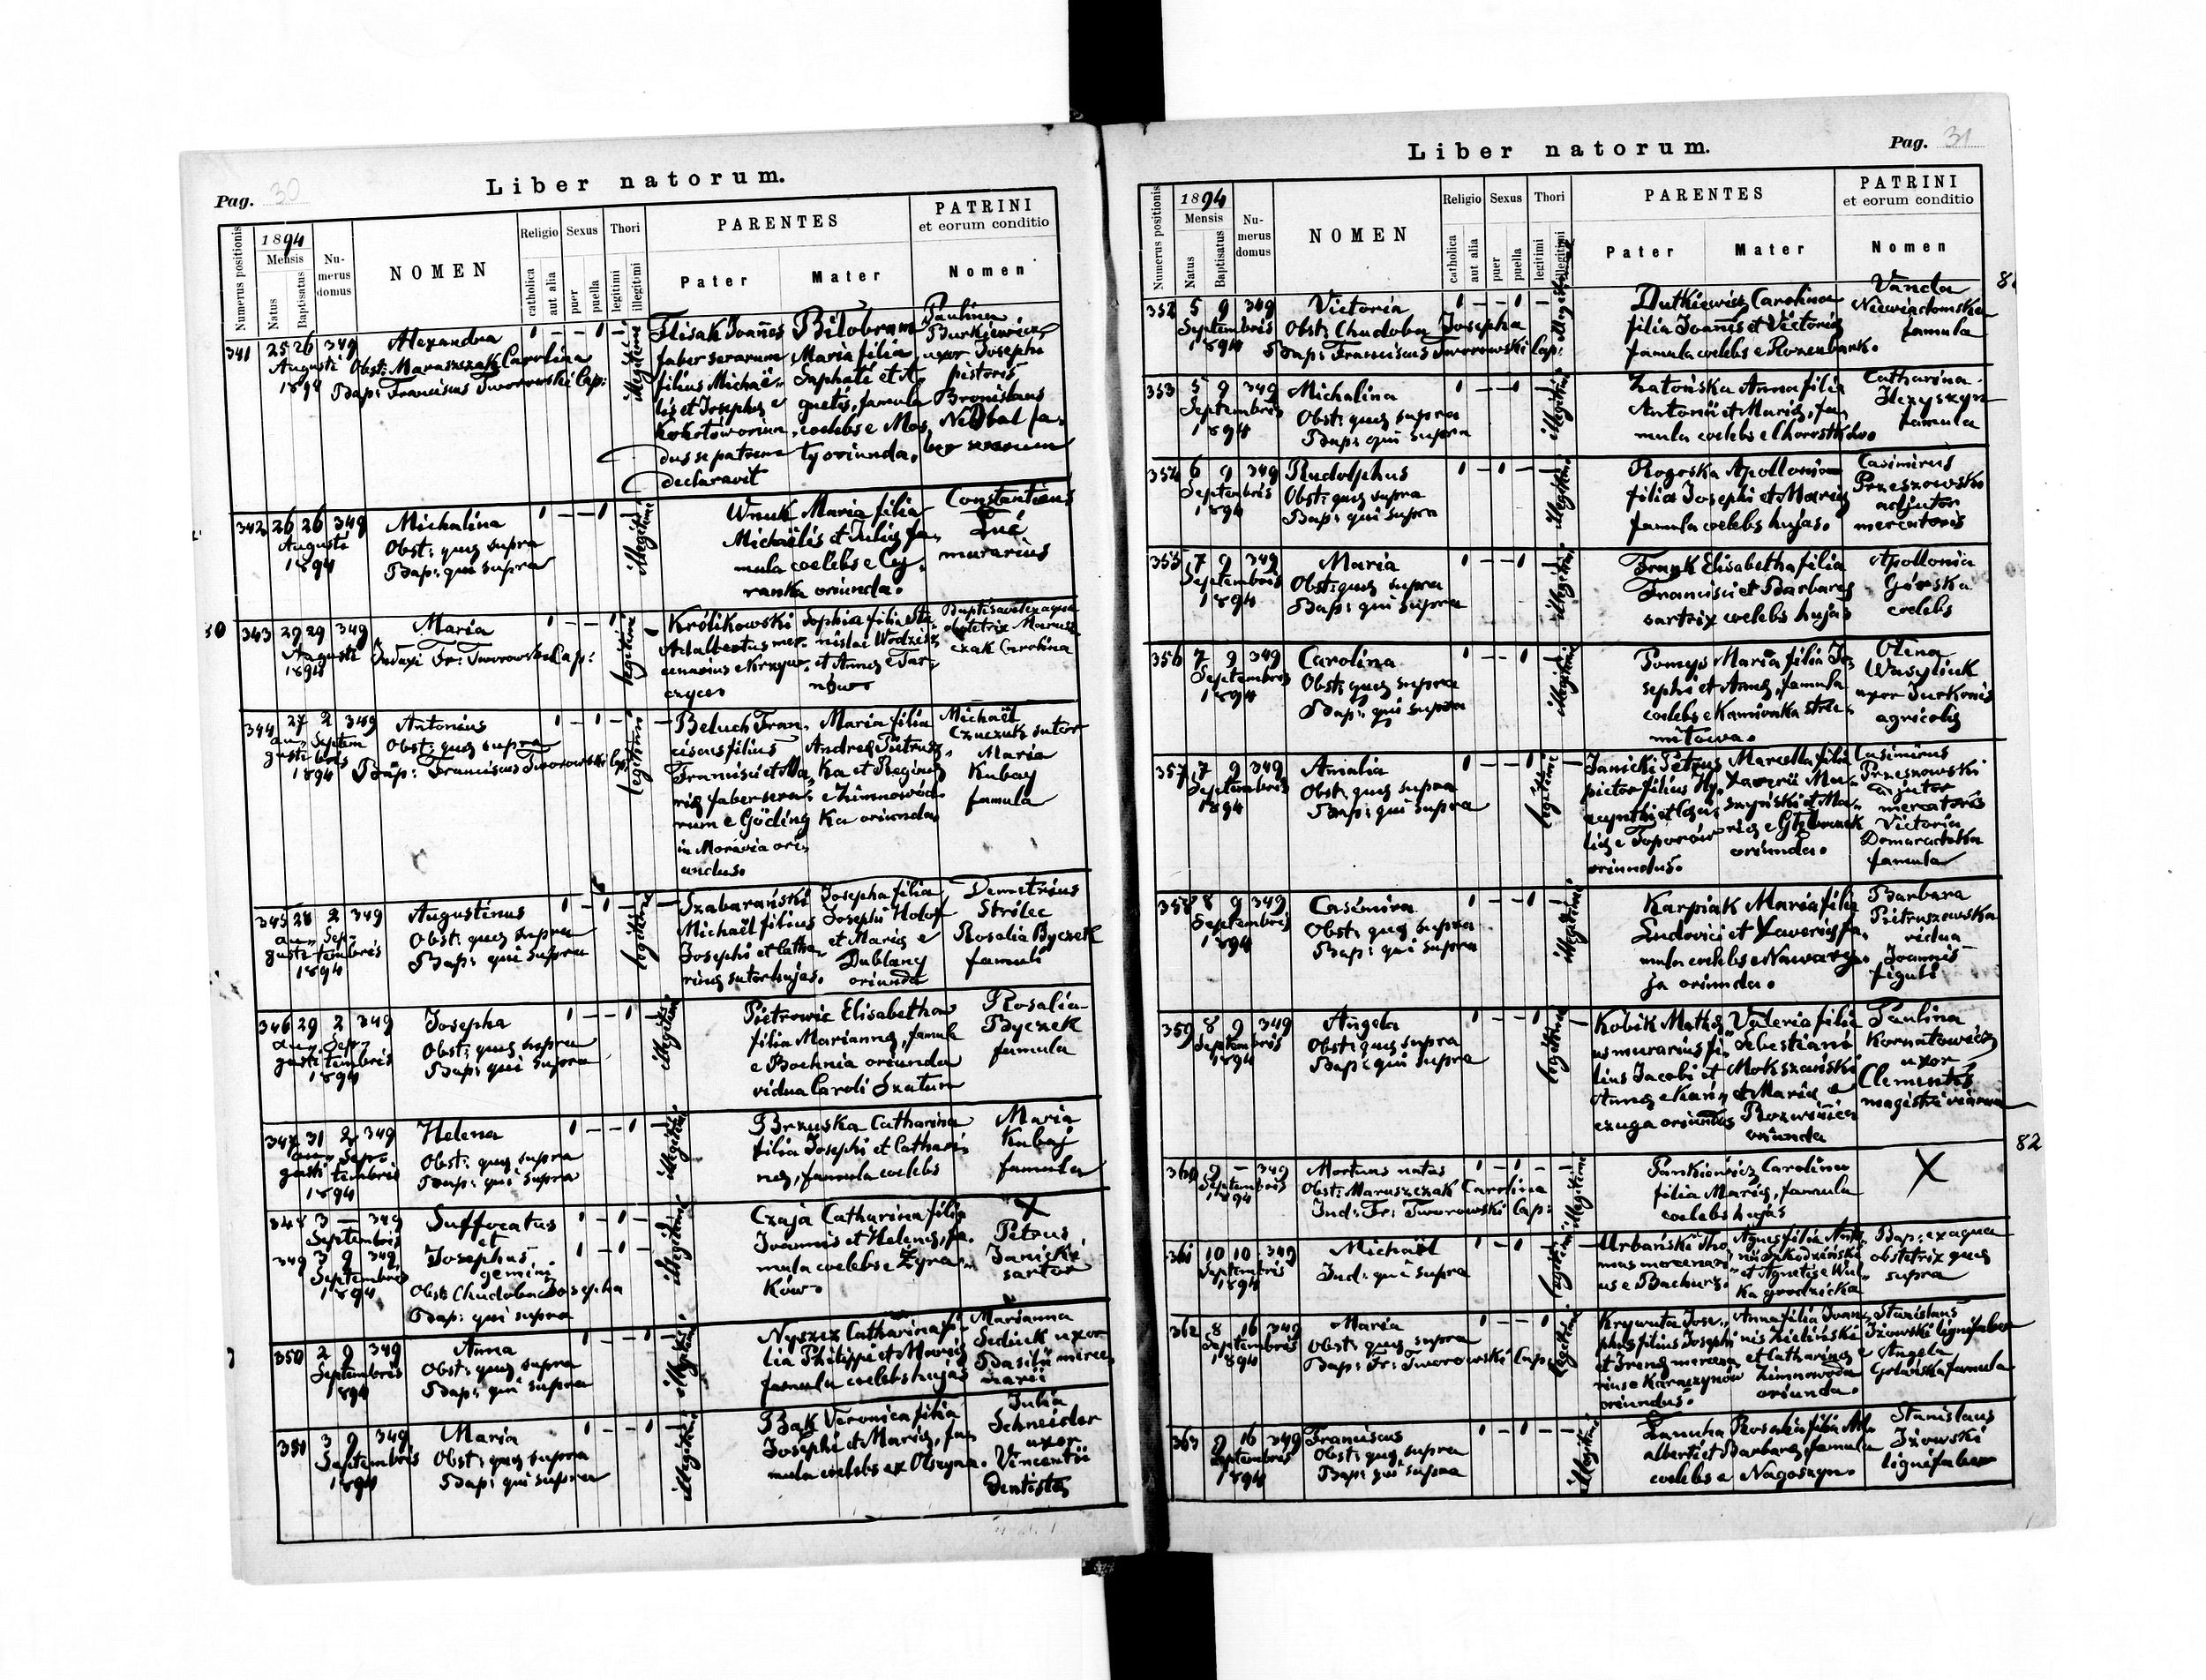 Pag. 30
Liber natorum.
Numerus positionis
1894
Mensis
Natus
Baptisatus
Nu-
merus
domus
NOMEN
Religio
catholica
aut alia
Sexus
puer
puella
Thori
legitimi
illegitimi
PARENTES
Pater
Mater
PATRINI
et eorum conditio
Nomen
341 25 26 349
Augusti
1894
Alexandra
Obst: Maruszczak Carolina
Bap: Franciscus Tworowski Cap:
1 – – 1 –
illegitimi
Flisak Joannes
faber serarum
filius Michaë-
lis et Josephæ e
Kokotów oriun
dus se patrem
declaravit
Bilobram
Maria filia
Saphati et A-
gnetis, famula
coelebs e Mos,
ty oriunda.
Paulina
Burkiewicz
uxor Josephi
pistoris
Bronislaus
Nedbal fa-
ber
342 26 26 349
Augusti
1894
Michalina
Obst: quæ supra
Bap: qui supra
1 – – 1
illegitimi
Wnuk Maria filia
Michaëlis et Juliæ fa-
mula coelebs e Cy-
ranka oriunda.
Constantinus
Łuć
murarius
343 29 29 349
Augusti
1894
Maria
Induxi Fr: Tworowski Cap:
1 – – 1
legitimi
Królikowski
Adalbertus mer-
cenarius e Krzyw-
czyce
Sophia filia Sta-
nislai Wodzisz
et Annæ e Tar-
nów
Baptisavit ex aqua
obstetrix Marusz
czak Carolina
344 27 2 349
au- Septem
gusti bris
1894
Antonius
Obst: quæ supra
Bap: Franciscus Tworowski Cap:
1 – 1 –
legitimi
Beluch Fran-
ciscus filius
Francisci et Ma-
riæ faber sera-
rum e Göding
in Moravia ori-
undus.
Maria filia
Andreæ Pietrusz-
ka et Reginæ
e Zimnowód-
ka oriunda
Michaël
Czuczuk sutor
Maria
Kubay
famula
345 28 2 349
au- Sep-
gusti tembris
1894
Augustinus
Obst: quæ supra
Bap: qui supra
1 – 1 –
legitimi
Szabarański
Michaël filius
Josephi et Catha-
rinæ sutor hujas.
Josepha filia
Josephi Holof
et Mariæ e
Dublany
oriunda
Demetrius
Strilec
Rosalia Byczek
famuli
346 29 2 349
au- Sep-
gusti tembris
1894
Josepha
Obst: quæ supra
Bap: qui supra
1 – – 1
illegitimi
Pietrowic Elisabetha
filia Mariannæ, famula
e Bochnia oriunda
vidua Caroli Szatun
Rosalia
Byczek
famula
347 31 2 349
au- Sep-
gusti tembris
1894
Helena
Obst: quæ supra
Bap: qui supra
1 – – 1
illegitimi
Brzuska Catharina
filia Josephi et Cathari-
næ, famula coelebs
Maria
Kubaj
famula
348 3 – 349
Septembris
349 3 9 349
Septembris
1894
Suffocatus
et
Josephus
gemini
Obst: Chudoba Josepha
Bap: qui supra
1 – 1 –
1 – 1 –
illegitimi
Czaja Catharina filia
Joannis et Helenæ, fa-
mula coelebs e Żyra-
ków.
X
Petrus
Janicki
sartor
350 2 9 349
Septembris
1894
Anna
Obst: quæ supra
Bap: qui supra
1 – – 1
illegitimi
Nyszcz Catharina fi-
lia Philippi et Mariæ
famula coelebs hujas
Marianna
Sediuk uxor
Basilii merce-
narii
351 3 9 349
Septembris
1894
Maria
Obst: quæ supra
Bap: qui supra
1 – – 1
illegitimi
Bąk Veronica filia
Josephi et Mariæ, fa-
mula coelebs ex Olszyna.
Julia
Schneider
uxor
Vincentii
dentistæ
Liber natorum.
Pag. 31
Numerus positionis
1894
Mensis
Natus
Baptisatus
Nu-
merus
domus
NOMEN
Religio
catholica
aut alia
Sexus
puer
puella
Thori
legitimi
illegitimi
PARENTES
Pater
Mater
PATRINI
et eorum conditio
Nomen
352 5 9 349
Septembris
1894
Victoria
Obst: Chudoba Josepha
Bap: Franciscus Tworowski Cap:
1 – – 1 –
illegitimi
Dutkiewicz Carolina
filia Joannis et Victoriæ
famula coelebs e Rozenbark.
Vanda
Niewiadomska
famula
353 5 9 349
Septembris
1894
Michalina
Obst: quæ supra
Bap: qui supra
1 – – 1
illegitimi
Zatońska Anna filia
Antonii et Mariæ, fa-
mula coelebs e Chorostków.
Catharina
famula
354 6 9 349
Septembris
1894
Rudolphus
Obst: quæ supra
Bap: qui supra
1 – 1 –
illegitimi
Rogoska Apollonia
filia Josephi et Mariæ
famula coelebs hujas.
Casimirus
Przeszowski
adjutor
mercatoris
355 7 9 349
Septembris
1894
Maria
Obst: quæ supra
Bap: qui supra
1 – – 1
illegitimi
Frank Elisabetha filia
Francisci et Barbaræ
sartrix coelebs hujas
Apollonia
Górska
coelebs
356 7 9 349
Septembris
1894
Carolina
Obst: quæ supra
Bap: qui supra
1 – – 1
illegitimi
Pomys Maria filia Jo-
sephi et Annæ, famula
coelebs e Kamionka stru-
mitowa.
Olena
Wasyliuk
uxor Jurkonis
agricolæ
357 7 9 349
Septembris
1894
Amalia
Obst: quæ supra
Bap: qui supra
1 – – 1
legitimi
Janicki Petrus
pictor filius Hy-
acynthi et
liæ e Toporów
oriundus.
Marcella filia
Xaverii Mu-
szyński et Ma-
riæ e
oriunda.
Casimirus
Przeszowski
adjutor
mercatoris
Victoria
Domaradzka
famula
358 8 9 349
Septembris
1894
Casimira
Obst: quæ supra
Bap: qui supra
1 – – 1
illegitimi
Karpiak Maria filia
Ludovici et Xaveriæ fa-
mula coelebs e Nawarza.
ja oriunda.
Barbara
Pietruszewska
vidua
Joannis
figuli
359 8 9 349
Septembris
1894
Angela
Obst: quæ supra
Bap: qui supra
1 – – 1
legitimi
Kobik Mathæ-
us murarius fi-
lius Jacobi et
Annæ e Kań-
czuga oriundus
Valeria filia
Sebestiani
Mokszański
et Mariæ e
Rozwinica
oriunda
Paulina
Kornatowicz
uxor
Clementis
magistri viarum
82
360 9 – 349
Septembris
1894
Mortuus natus
Obst: Maruszczak Carolina
Ind: Fr: Tworowski Cap:
1 – 1 –
illegitimi
Pankiewicz Carolina
filia Mariæ, famula
coelebs hujas
X
361 10 10 349
Septembris
1894
Michaël
Ind: qui supra
1 – 1
legitimi
Urbański Tho-
mas mercenari-
us e Bachurz.
Agnes filia Anto-
nii Szkodziński
et Agnetis e Wul-
ka grodzicka
Bap: ex aqua
obstetrix quæ
supra
362 8 16 349
Septembris
1894
Maria
Obst: quæ supra
Bap: Fr: Tworowski Cap:
1 – – 1
legitimi
Krywuta Jose-
phus filius Josephi
et Irenæ mercena-
rius e Karaczynów
oriundus.
Anna filia Joan-
nis Zieliński
et Catharinæ e
Zimnowoda
oriunda.
Stanislaus
Iżowski lignifaber
Angela
famula
363 9 16 349
Septembris
1894
Franciscus
Obst: quæ supra
Bap: qui supra
1 – 1 – –
illegitimi
Rosalia filia Ad-
alberti et Barbaræ, famula
coelebs e Nagoszyn.
Stanislaus
Iżowski
lignifaber